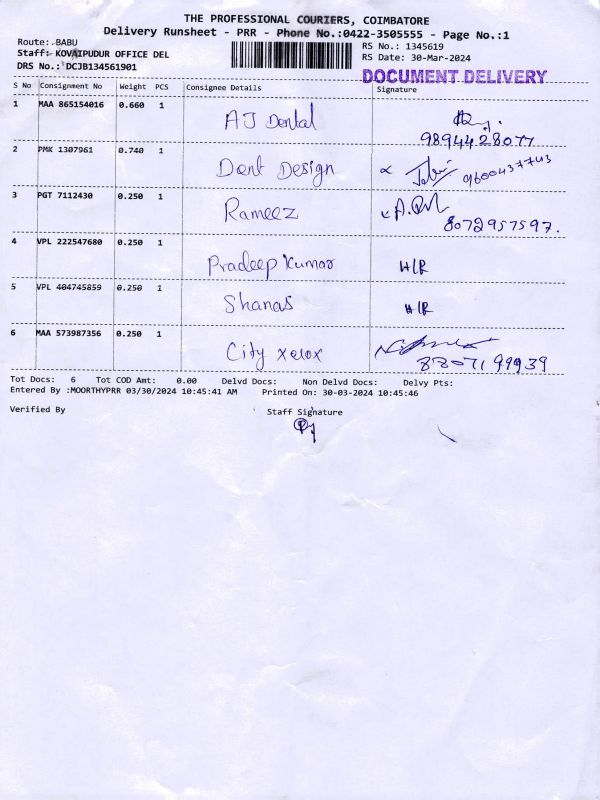 THE PROFESSIONAL COURIERS, COIMBATORE
Delivery Runsheet - PRR - Phone No.:0422-3505555 - Page No.:1
Route: BABU
Staff: KOVAIPUDUR OFFICE DEL
DRS No.: DCJB134561901
RS No.: 1345619
RS Date: 30-Mar-2024
DOCUMENT DELIVERY
S No Consignment No Weight PCS Consignee Details Signature
1 MAA 865154016 0.660 1 AJ Dental
9894428077
2 PMK 1307961 0.740 1 Dent Design 9600437743
3 PGT 7112430 0.250 1 Rameez
8072957597.
4 VPL 222547680 0.250 1 Pradeep Kumar H/R
5 VPL 404745859 0.250 1 Shanas H/R
6 MAA 573987356 0.250 1 City Xerox
8807199939
Tot Docs: 6 Tot COD Amt: 0.00 Delvd Docs: Non Delvd Docs: Delvy Pts:
Entered By :MOORTHYPRR 03/30/2024 10:45:41 AM Printed On: 30-03-2024 10:45:46
Verified By Staff Signature